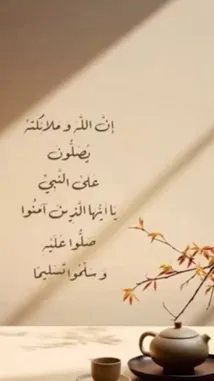 إنّ اللّه و ملائكته
يُصلُّون
على النَّبيّ
يَا ايُّها الَّذينَ آمَنُوا
صَلُّوا عَلَيْهِ
و سَلِّمُوا تَسليمًا